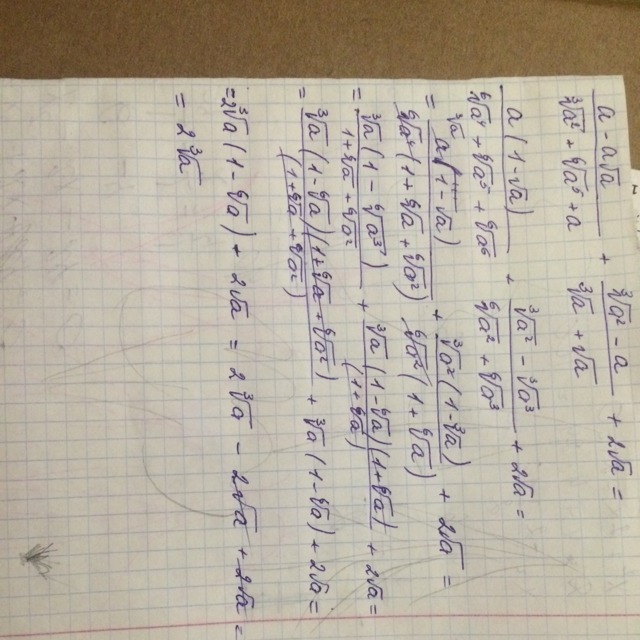 (a - a√a)/(∛a² + ⁶√a⁵ + a) + (∛a² - a)/(∛a + √a) + 2√a =
a(1-√a)/(⁶√a⁴ + ⁶√a⁵ + ⁶√a⁶) + (∛a² - ∛a³)/(⁶√a² + ⁶√a³) + 2√a =
= ∛a a(1-√a)/(⁶√a⁴(1 + ⁶√a + ⁶√a²)) + ∛a²(1-∛a)/(⁶√a²(1 + ⁶√a)) + 2√a =
= ∛a(1 - ⁶√a³)/(1 + ⁶√a + ⁶√a²) + ∛a(1-⁶√a)(1+⁶√a)/(1+⁶√a) + 2√a =
= ∛a(1-⁶√a)(1+⁶√a+⁶√a²)/(1+⁶√a+⁶√a²) + ∛a(1-⁶√a) + 2√a =
= 2∛a(1-⁶√a) + 2√a = 2∛a - 2√a + 2√a =
= 2∛a